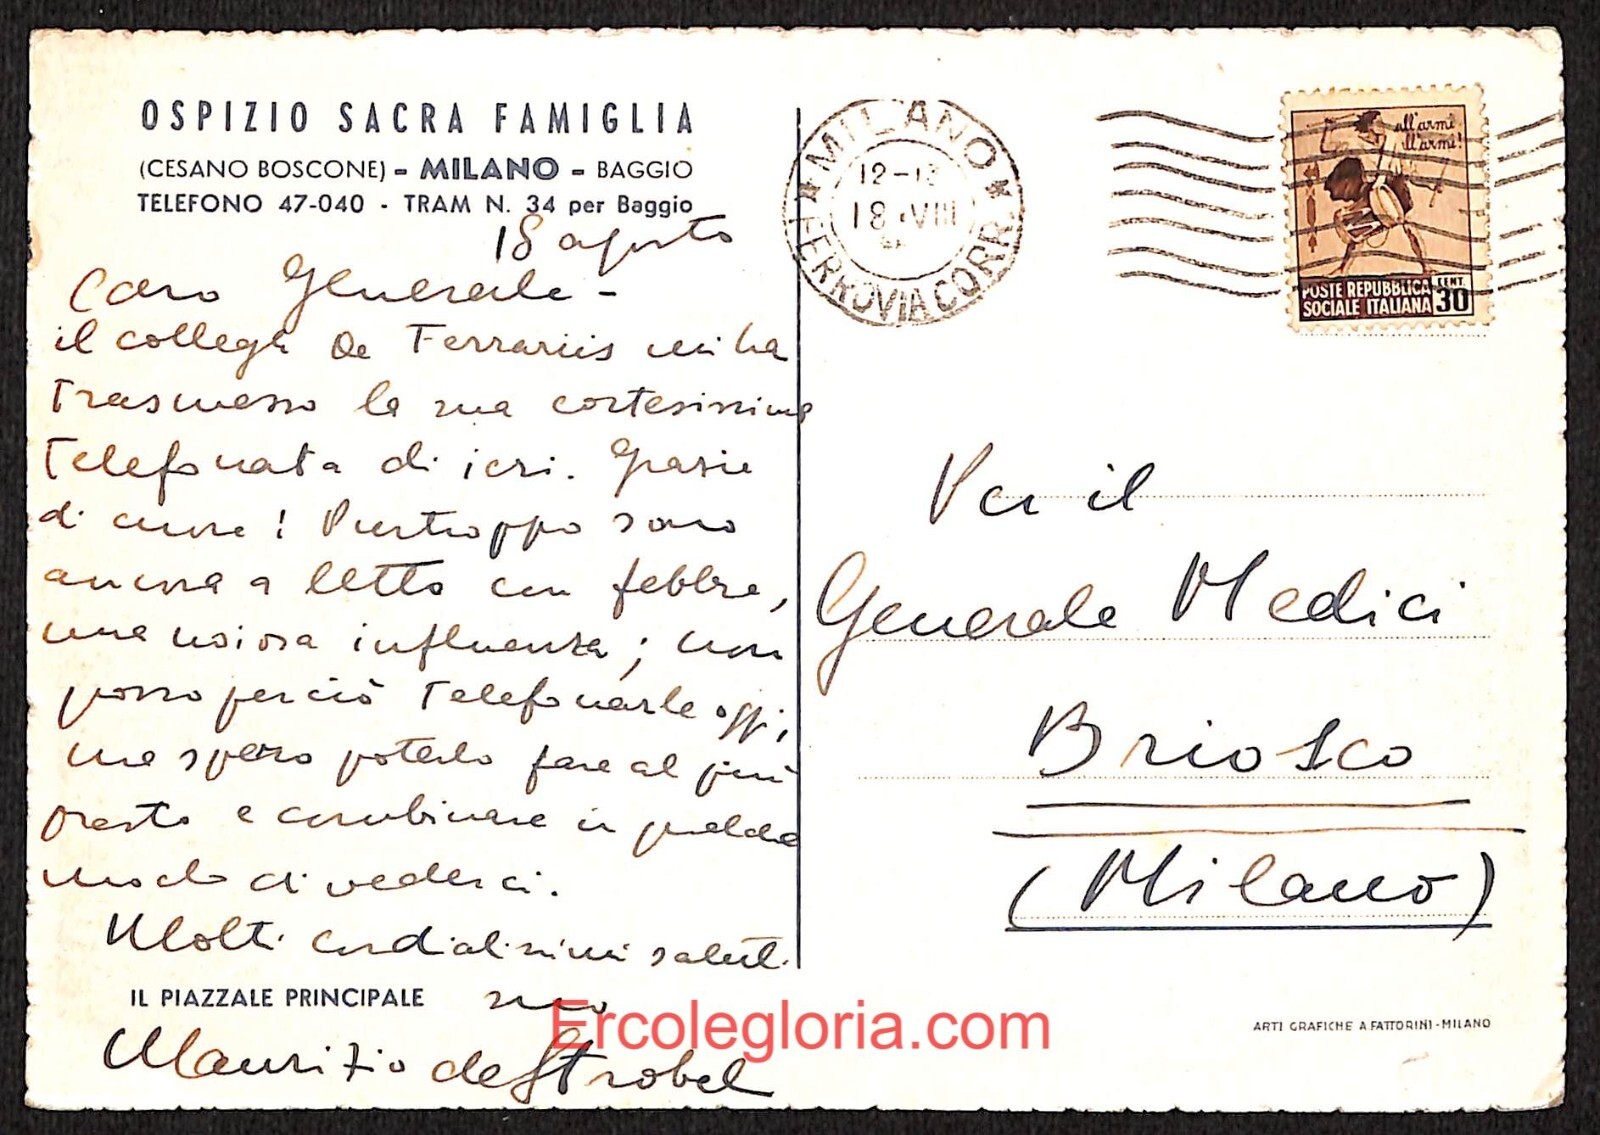 OSPIZIO SACRA FAMIGLIA
(CESANO BOSCONE) - MILANO - BAGGIO
TELEFONO 47-040 - TRAM N. 34 per Baggio
18 agosto
Caro Generale -
il collega De Ferrariis mi ha
trasmesso la sua cortesissima
telefonata di ieri. Grazie
di cuore! Purtroppo sono
ancora a letto con febbre,
una noiosa influenza; non
posso perciò telefonarle oggi,
ma spero poterlo fare al più
presto e combinare in qualche
modo di vederci.
Molti cordialissimi saluti.
suo
Maurizio de Strobel
IL PIAZZALE PRINCIPALE
MILANO
12-
18 VIII
FERROVIA CORR.
all'armi
all'armi!
POSTE REPUBBLICA
SOCIALE ITALIANA
CENT.
30
Per il
Generale Medici
Briosco
(Milano)
ARTI GRAFICHE A. FATTORINI - MILANO
Ercolegloria.com